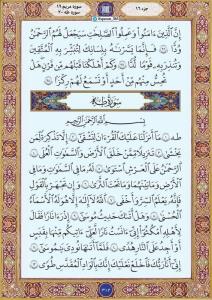 جزء ۱۶
سوره مریم ۱۹
سوره طه ۲۰
إِنَّ ٱلَّذِينَ ءَامَنُوا۟ وَعَمِلُوا۟ ٱلصَّٰلِحَٰتِ سَيَجْعَلُ لَهُمُ ٱلرَّحْمَٰنُ
وُدًّا ۝٩٦ فَإِنَّمَا يَسَّرْنَٰهُ بِلِسَانِكَ لِتُبَشِّرَ بِهِ ٱلْمُتَّقِينَ
وَتُنذِرَ بِهِۦ قَوْمًا لُّدًّا ۝٩٧ وَكَمْ أَهْلَكْنَا قَبْلَهُم مِّن قَرْنٍ هَلْ
تُحِسُّ مِنْهُم مِّنْ أَحَدٍ أَوْ تَسْمَعُ لَهُمْ رِكْزًۢا ۝٩٨
سُورَةُ طه
بِسْمِ ٱللَّهِ ٱلرَّحْمَٰنِ ٱلرَّحِيمِ
طه ۝١ مَآ أَنزَلْنَا عَلَيْكَ ٱلْقُرْءَانَ لِتَشْقَىٰٓ ۝٢ إِلَّا تَذْكِرَةً لِّمَن
يَخْشَىٰ ۝٣ تَنزِيلًا مِّمَّنْ خَلَقَ ٱلْأَرْضَ وَٱلسَّمَٰوَٰتِ ٱلْعُلَى ۝٤
ٱلرَّحْمَٰنُ عَلَى ٱلْعَرْشِ ٱسْتَوَىٰ ۝٥ لَهُۥ مَا فِى ٱلسَّمَٰوَٰتِ وَمَا فِى
ٱلْأَرْضِ وَمَا بَيْنَهُمَا وَمَا تَحْتَ ٱلثَّرَىٰ ۝٦ وَإِن تَجْهَرْ بِٱلْقَوْلِ
فَإِنَّهُۥ يَعْلَمُ ٱلسِّرَّ وَأَخْفَى ۝٧ ٱللَّهُ لَآ إِلَٰهَ إِلَّا هُوَ لَهُ ٱلْأَسْمَآءُ
ٱلْحُسْنَىٰ ۝٨ وَهَلْ أَتَىٰكَ حَدِيثُ مُوسَىٰٓ ۝٩ إِذْ رَءَا نَارًا فَقَالَ
لِأَهْلِهِ ٱمْكُثُوٓا۟ إِنِّىٓ ءَانَسْتُ نَارًا لَّعَلِّىٓ ءَاتِيكُم مِّنْهَا بِقَبَسٍ
أَوْ أَجِدُ عَلَى ٱلنَّارِ هُدًى ۝١٠ فَلَمَّآ أَتَىٰهَا نُودِىَ يَٰمُوسَىٰٓ ۝١١
إِنِّىٓ أَنَا۠ رَبُّكَ فَٱخْلَعْ نَعْلَيْكَ إِنَّكَ بِٱلْوَادِ ٱلْمُقَدَّسِ طُوًى ۝١٢
۳۱۲